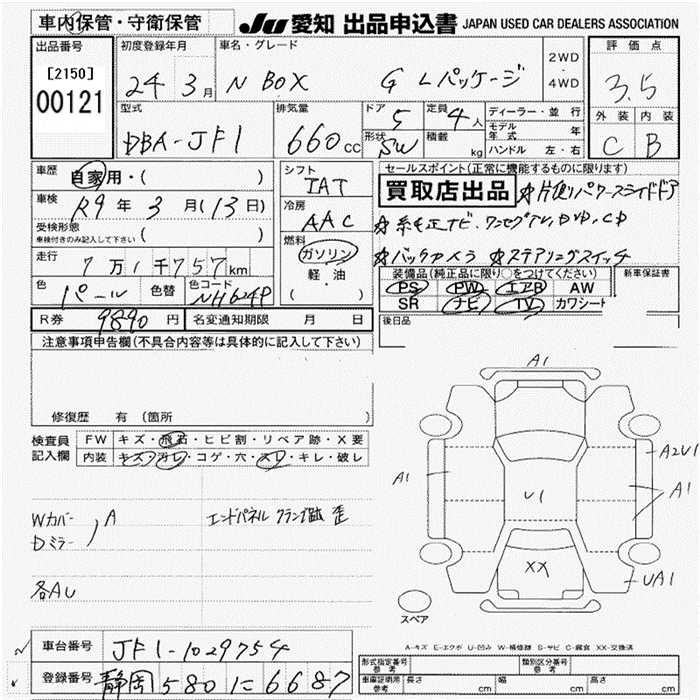 車内保管・守衛保管
JU 愛知 出品申込書 JAPAN USED CAR DEALERS ASSOCIATION
出品番号
[2150]
00121
初度登録年月
24年 3月
車名・グレード
N BOX G Lパッケージ
2WD
・
4WD
評価点
3.5
外装 内装
C B
型式
DBA-JF1
排気量
660cc
ドア
5
形状
SW
定員
4人
積載
kg
ディーラー・並行
モデル年式 年
ハンドル 左・右
車歴
自家用・( )
車検
R9年 3月(13日)
受検形態
車検付きのみ記入して下さい ( )
走行
7万1千757km
色
パール
色替
色コード
NH624P
シフト
IAT
冷房
AAC
燃料
ガソリン
軽・油
( )
セールスポイント(正常に機能するものに限ります)
買取店出品 ☆片側パワースライドドア
☆純正ナビ.ワンセグTV,DVD,CD
☆バックカメラ ☆ステアリングスイッチ
装備品(純正品に限り○をつけてください)
PS PW エアB AW
SR ナビ TV カワシート
新車保証書
R券 9890円 名変通知期限 月 日
後日品
注意事項申告欄(不具合内容等は具体的に記入して下さい)
修復歴 有 (箇所 )
検査員
記入欄
FW キズ・飛石・ヒビ割・リペア跡・X要
内装 キズ・汚レ・コゲ・穴・スレ・キレ・破レ
Wカバー
Dミラー
A
エンドパネル クランプ跡 歪
各AU
A1
A1
U1
A2U1
A1
XX
UA1
スペア
A-キズ E-エクボ U-凹み W-補修跡 S-サビ C-腐食 XX-交換済
車台番号 JF1-1029754
登録番号 静岡 580 に 6687
形式指定番号
参考
類別区分番号
参考
車庫証明用
参考
長さ cm 幅 cm 高さ cm